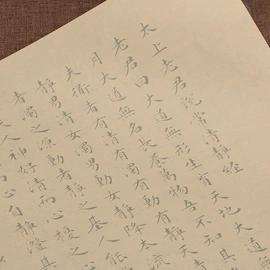 太上老君說常清靜經
老君曰大道無形生育天地大道
月大道無名長養萬物吾不知其
夫道者有清有濁有動有靜天
靜男清女濁男動女靜降本流
者濁之源動者靜之基人能
人神好清而心擾之
心自靜澄其